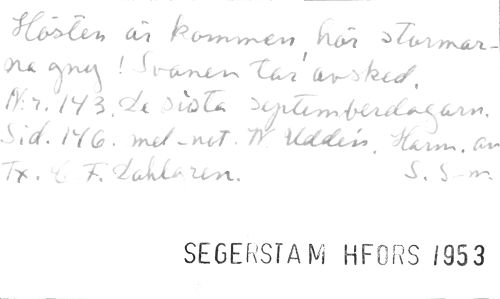 Hösten är kommen, hör stormar-
na gny! Svanen tar avsked.
Nr. 143. De sista septemberdagarn.
Sid. 146. mel-not. W. Uddén. Harm. av
Tx. C F. Dahlgren. S. S-m.
SEGERSTAM HFORS 1953